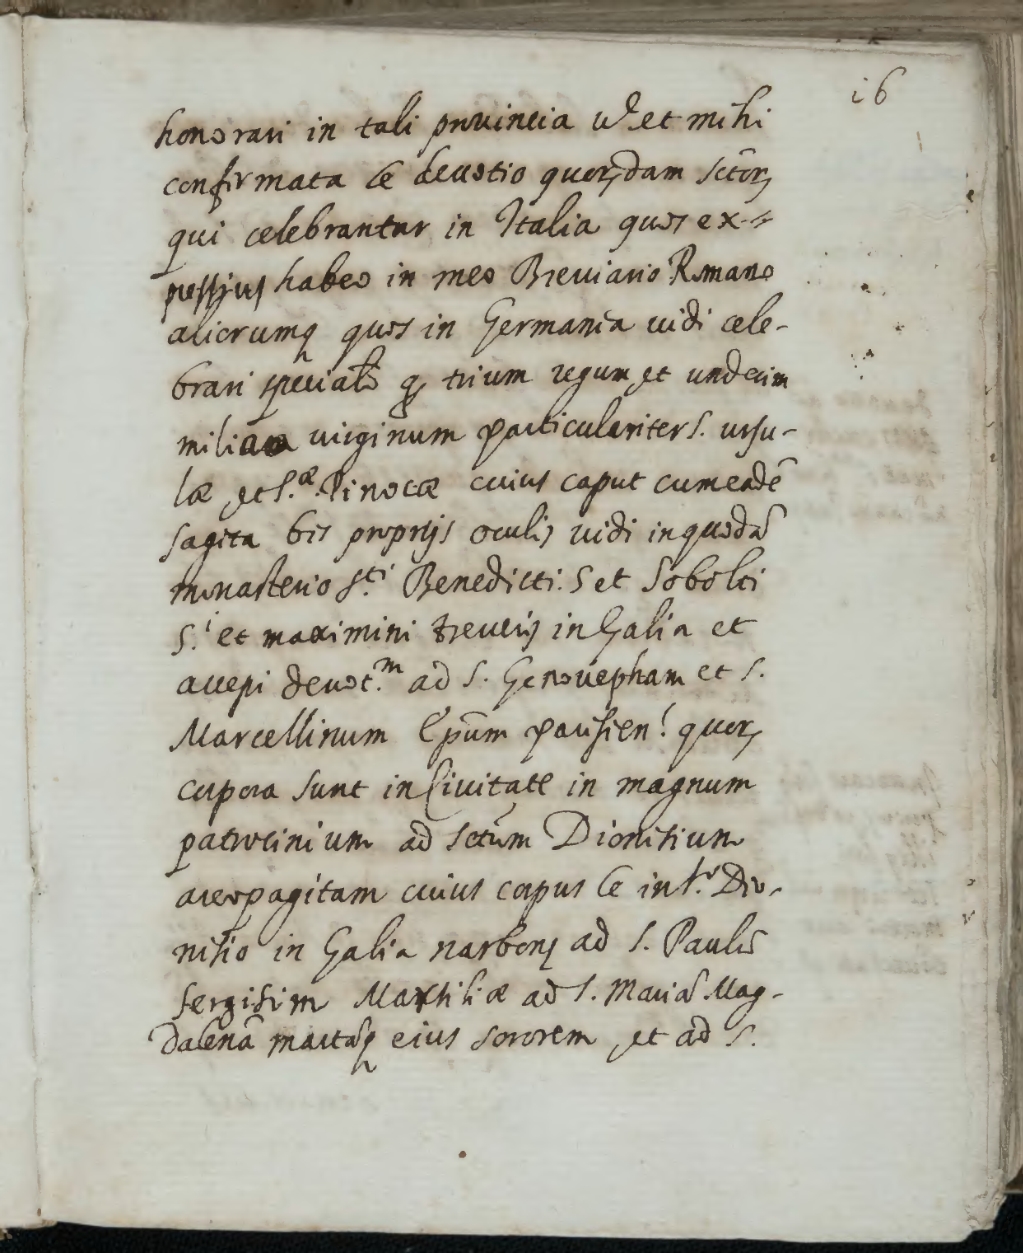 i6
honorari in tali prouincia ut et mihi
confirmata è deuotio quorũdam sctor̃
qui celebrantur in Italia quos ex-
pressius habeo in meo Breuiario Romano
aliorumq quos in Germania uidi cele-
brari specialr̃ trium regum et undecim
milia uirginum particulariter S. ursu-
læ et S.æ Pinocæ cuius caput cum eadẽ
sagita bis proprijs oculis uidi in quodã
monasterio S.ti Benedicti. S et Sobolti
S.i et maximini treueris in Galia et
accepi deuot.m ad S. Genouepham et S.
Marcellinum Ep̃um parisien! quor,
corpora sunt in Ciuitate in magnum
patrocinium ad sctũm Dionisium
areopagitam cuius corpus è in S.to Dio-
nisio in Galia narbons ad S. Paulũ
sergisim Marsiliæ ad S. Mariã Mag-
dalenã martãq eius sororem et ad S.